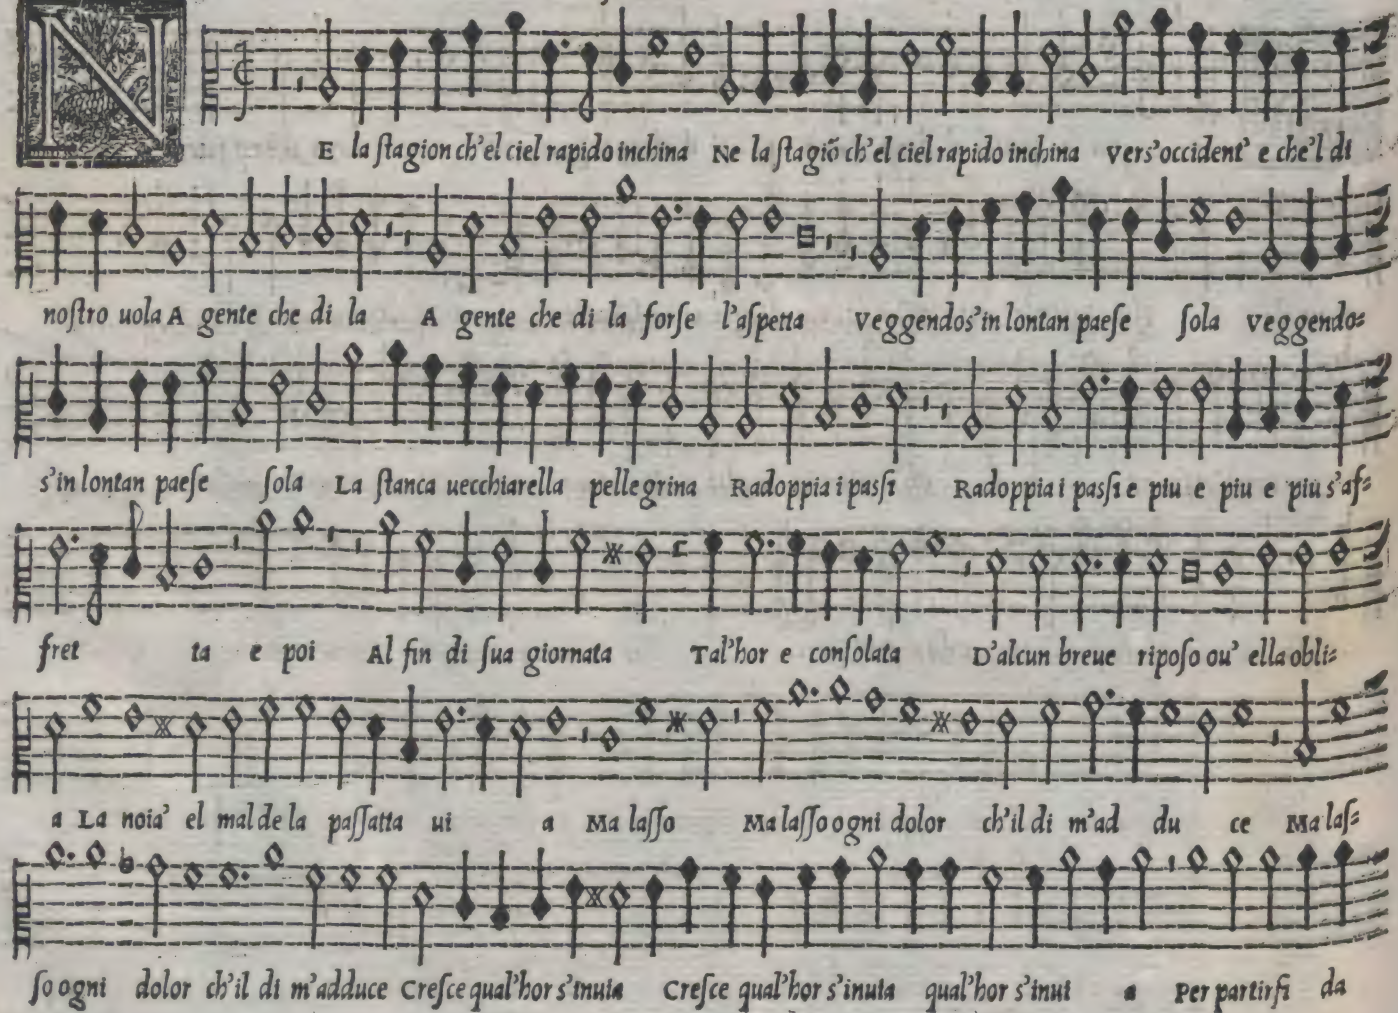 N
E la ſtagion ch'el ciel rapido inchina Ne la ſtagiõ ch'el ciel rapido inchina vers'occident' e che'l di
noſtro uola A gente che di la A gente che di la forſe l'aſpetta Veggendos'in lontan paeſe ſola veggendo⸗
s'in lontan paeſe ſola La ſtanca uecchiarella pellegrina Radoppia i paſſi Radoppia i paſſi e piu e piu e piu s'af⸗
fret ta e poi Al fin di ſua giornata Tal'hor e conſolata D'alcun breue ripoſo ou' ella obli⸗
a La noia' el mal de la paſſatta ui a Ma laſſo Ma laſſo ogni dolor ch'il di m'ad du ce Ma laſ⸗
ſo ogni dolor ch'il di m'adduce Creſce qual'hor s'inuia Creſce qual'hor s'inuia qual'hor s'inui a Per partirſi da